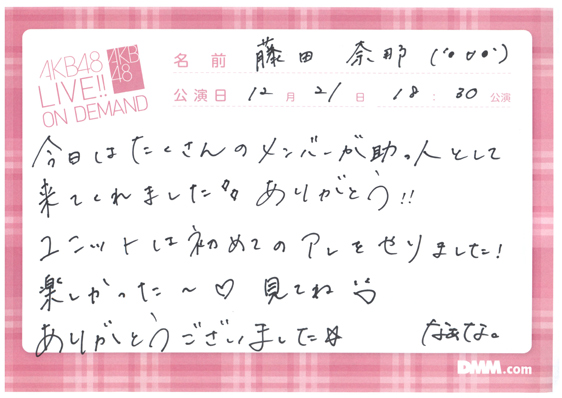 AKB48
LIVE!!
ON DEMAND
AKB
48
名前 藤田 奈那 (•ㅂ•)
公演日 12月21日 18:30公演
今日はたくさんのメンバーが助っ人として
来てくれました♪ ありがとう!!
ユニットは初めてのアレをやりました!
楽しかった〜♡ 見てね
ありがとうございました☆
なぁな。
DMM.com